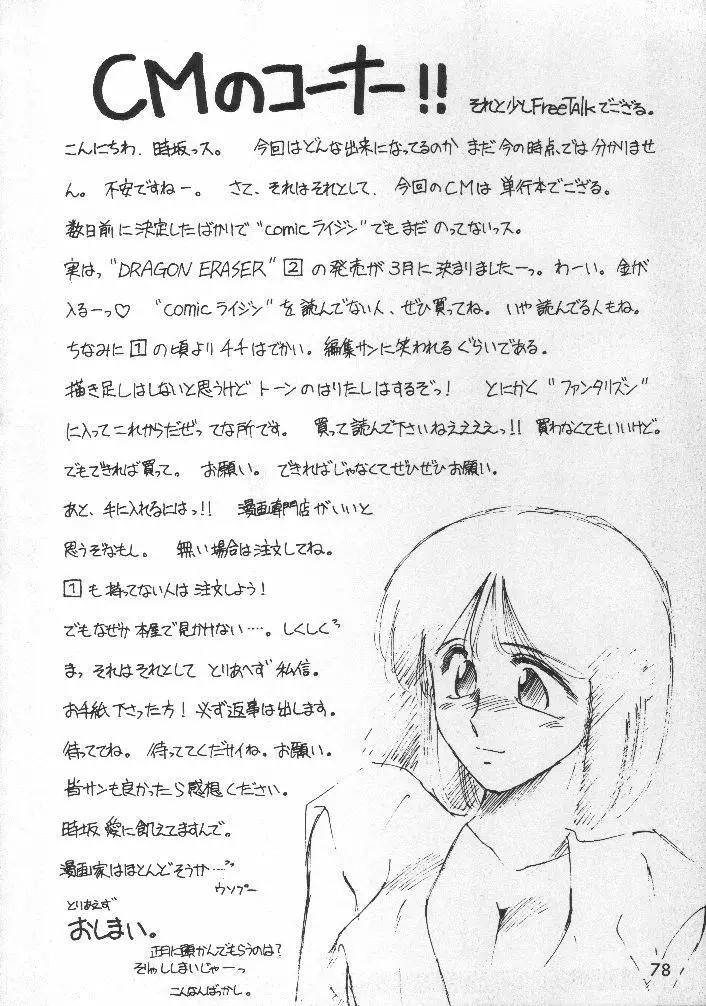 CMのコーナー!! それと少しFreeTalkでござる。
こんにちわ、時坂っス。 今回はどんな出来になってるのか まだ今の時点では分かりませ
ん。 不安ですねー。 さて、それはそれとして、今回のCMは 単行本でござる。
数日前に決定したばかりで“comicライジン”でもまだ のってないっス。
実はっ“DRAGON ERASER”2 の発売が 3月に決まりましたーっ。わーい。金が
入るーっ♡ “comicライジン”を読んでない人、ぜひ買ってね。いや読んでる人もね。
ちなみに 1 の頃より チチはでかい。編集サンに笑われるぐらいである。
描き足しはしないと思うけど トーンのはりたしはするぞっ! とにかく“ファンタリズン”
に入って これからだぜって な所です。 買って読んで下さいねえええぇっ!! 買わなくてもいいけど。
でもできれば買って。 お願い。 できればじゃなくてぜひぜひお願い。
あと、手に入れるにはっ!! 漫画専門店がいいと
思うぞなもし。 無い場合は注文してね。
1 も 持ってない人は 注文しよう!
でもなぜか 本屋で見かけない…。しくしく
まっ それはそれとして とりあへず 私信。
お手紙下さった方! 必ず返事は出します。
待っててね。 待っててくだサイね。お願い。
皆サンも良かったら感想ください。
時坂 愛に飢えてますんで。
漫画家はほとんどそうか…
ウソプー
とりあえず
おしまい。
正月に頭かんでもらうのは?
そりゅししまいじゃーっ
こんなんばっかし。
78